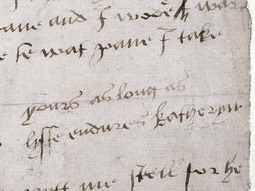 and I wo
wat pane I take
yours as long as
lyffe endures katheryn
me stell for he